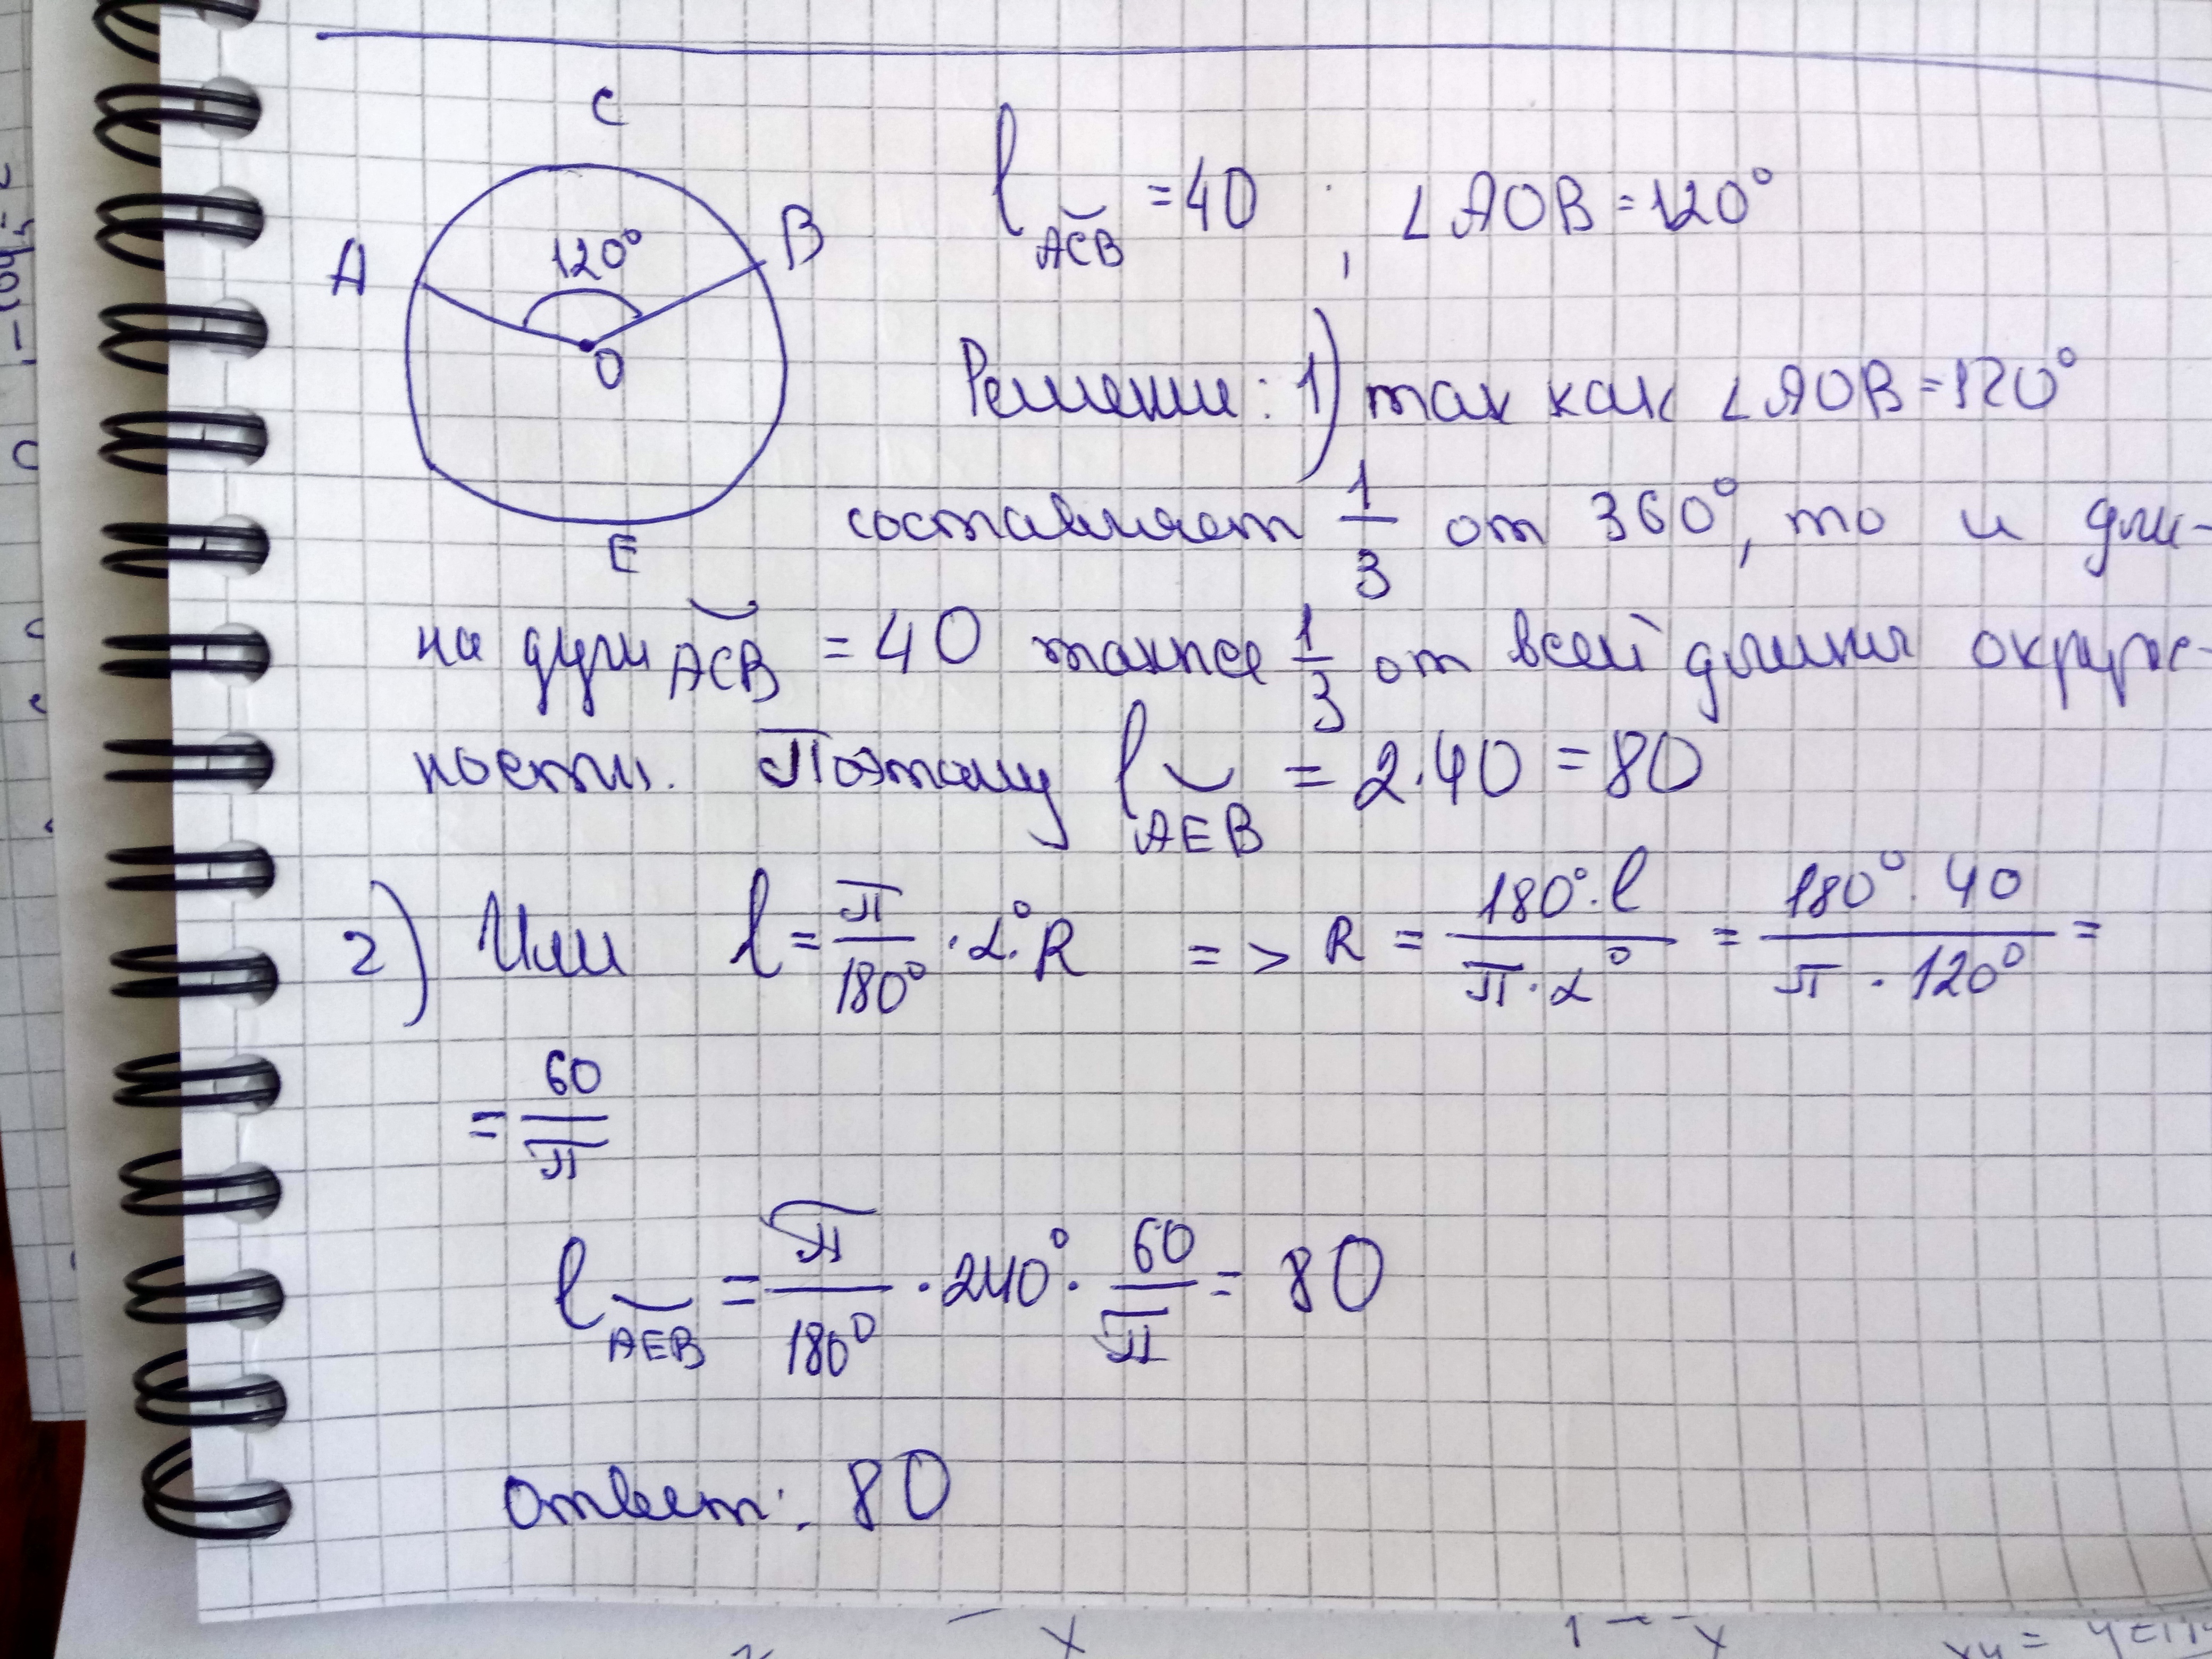 C
A
B
120°
O
E
l ACB = 40 ; ∠AOB = 120°
Решение: 1) так как ∠AOB = 120°
составляет 1/3 от 360°, то и дли-
на дуги ACB = 40 также 1/3 от всей длины окруж-
ности. Поэтому l AEB = 2·40 = 80
2) Или l = π/180° · α° · R => R = 180°·l / π·α° = 180°·40 / π·120° =
= 60/π
l AEB = π/180° · 240° · 60/π = 80
Ответ: 80